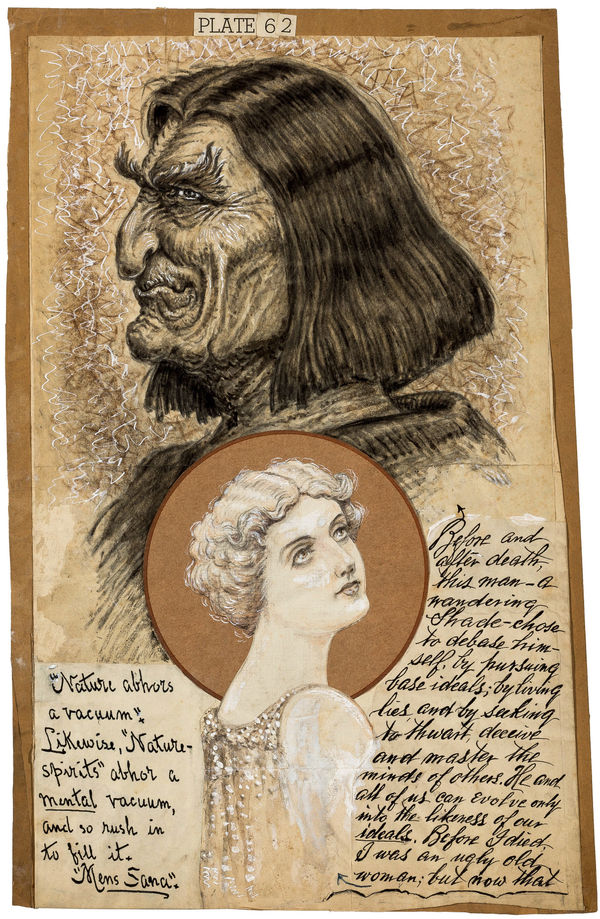 PLATE 62
Before and
after death,
this man – a
wandering
Shade – chose
to debase him-
self, by pursuing
base ideals; by living
lies and by seeking
to thwart, deceive
and master the
minds of others. He and
all of us can evolve only
into the likeness of our
ideals. Before I died,
I was an ugly old
woman; but now that
"Nature abhors
a vacuum".
Likewise, "Nature-
spirits" abhor a
mental vacuum,
and so rush in
to fill it.
"Mens Sana".